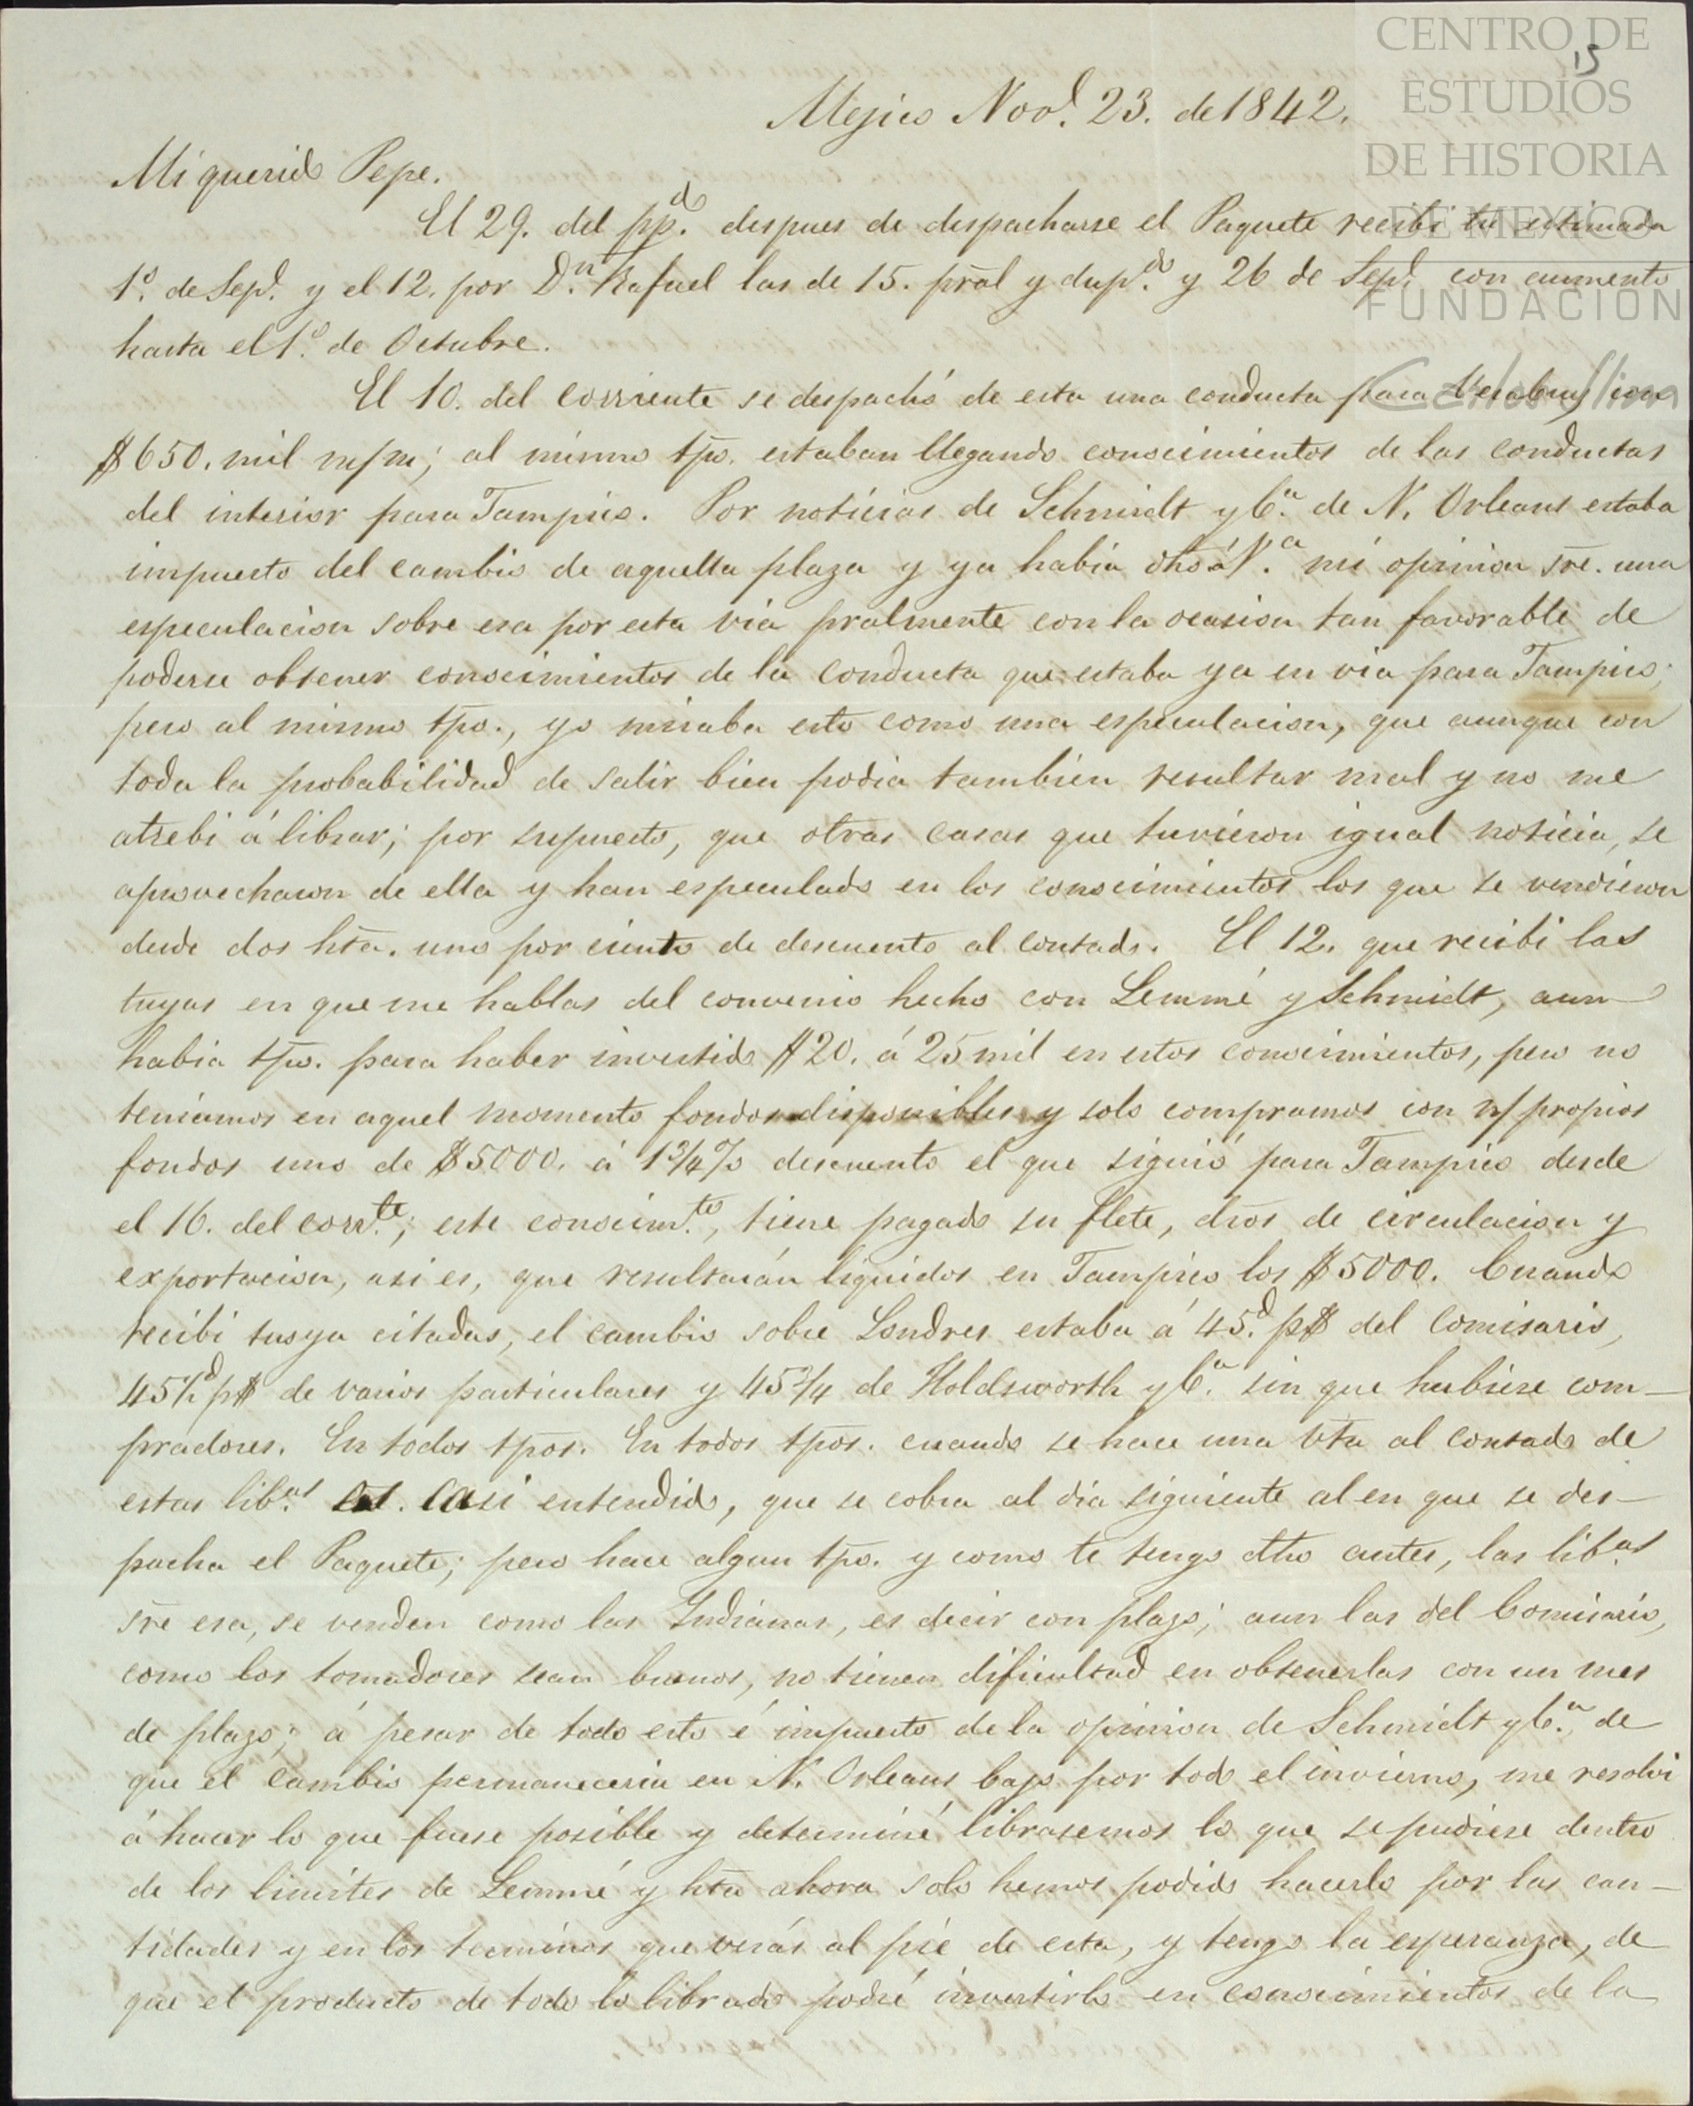 CENTRO DE
ESTUDIOS
DE HISTORIA
DE MEXICO
FUNDACION
Carlos Slim
15
Mejico Nov.e 23. de 1842.
Mi querido Pepe.
El 29. del pp.do despues de despacharse el Paquete recibi tu estimada
1.o de Sep.e y el 12. por D.n Rafael las de 15. pral y dup.do y 26 de Sep.e con aumento
hasta el 1.o de Octubre.
El 10. del corriente se despachó de esta una conducta para Veracruz con
$650. mil m/m; al mismo tpo. estaban llegando conocimientos de las conductas
del interior para Tampico. Por noticias de Schmidt y C.a de N. Orleans estaba
impuesto del cambio de aquella plaza y ya habia dho á N.a mi opinion sre. una
especulacion sobre esa por esta via pralmente con la ocasion tan favorable de
poderse obtener conocimientos de la conducta que estaba ya en via para Tampico;
pero al mismo tpo., yo miraba esto como una especulacion, que aunque con
toda la probabilidad de salir bien podia tambien resultar mal y no me
atrebi á librar; por supuesto, que otras casas que tuvieron igual noticia, se
aprovecharon de ella y han especulado en los conocimientos los que se vendieron
desde dos hta. uno por ciento de descuento al contado. El 12. que recibi las
tuyas en que me hablas del convenio hecho con Lemmé y Schmidt, aun
habia tpo. para haber invertido $20. á 25 mil en estos conocimientos, pero no
teniamos en aquel momento fondos disponibles y solo compramos con n/ propios
fondos uno de $5000. á 1 3/4 % descuento el que siguió para Tampico desde
el 16. del corr.te; este conocim.to, tiene pagado su flete, dros de circulacion y
exportacion, asi es, que resultarán liquidos en Tampico los $5000. Cuando
recibi tus ya citadas, el cambio sobre Londres estaba á 45.d p$ del Comisario,
45 1/2 d p$ de varios particulares y 45 3/4 de Holdsworth y C.a sin que hubiese com-
pradores. En todos tpos. En todos tpos. cuando se hace una vta al contado de
estas lib.as es casi entendido, que se cobra al dia siguiente al en que se des-
pacha el Paquete; pero hace algun tpo. y como te tengo dho antes, las lib.as
sre esa, se venden como las Indianas, es decir con plazo; aun las del Comisario,
como los tomadores sean buenos, no tienen dificultad en obtenerlas con un mes
de plazo; á pesar de todo esto é impuesto de la opinion de Schmidt y C.a, de
que el cambio permaneceria en N. Orleans bajo por todo el invierno, me resolvi
á hacer lo que fuese posible y determiné librasemos lo que se pudiese dentro
de los limites de Lemmé y hta ahora solo hemos podido hacerlo por las can-
tidades y en los terminos que verás al pie de esta, y tengo la esperanza, de
que el producto de todo lo librado podré invertirlo en conocimientos de la